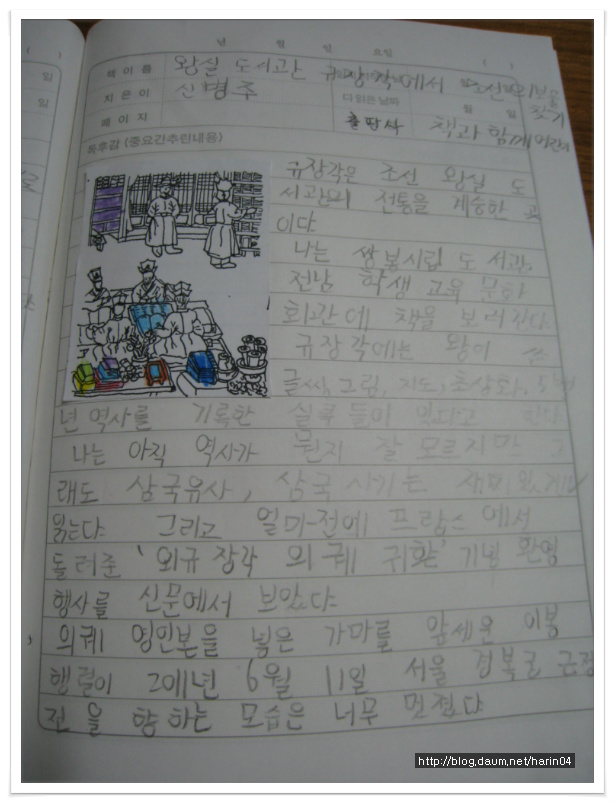 년 월 일 요일 ( )
책 이 름 왕실 도서관 규장각에서 조선의 보물 찾기
지 은 이 신병주 다 읽은 날짜 월 일
페 이 지 출판사 책과 함께 어린이
독후감 (중요간추린내용)
규장각은 조선 왕실 도
서관의 전통을 계승한 곳
이다
나는 쌍봉시립 도서관,
전남 학생 교육 문화
회관에 책을 보러 간다.
규장각에는 왕이 쓴
글씨, 그림, 지도, 초상화,
년 역사를 기록한 실록 들이 있다고 한다
나는 아직 역사가 뭔지 잘 모르지만 그
래도 삼국유사, 삼국 사기는 재미있게
읽는다. 그리고 얼마전에 프랑스 에서
돌려준 '외규장각 의궤 귀환' 기념 환영
행사를 신문에서 보았다
의궤 영인본을 넣은 가마를 앞세운 이봉
행렬이 2011년 6월 11일 서울 경복궁 근정
전 을 향하는 모습은 너무 멋졌다
http://blog.daum.net/harin04